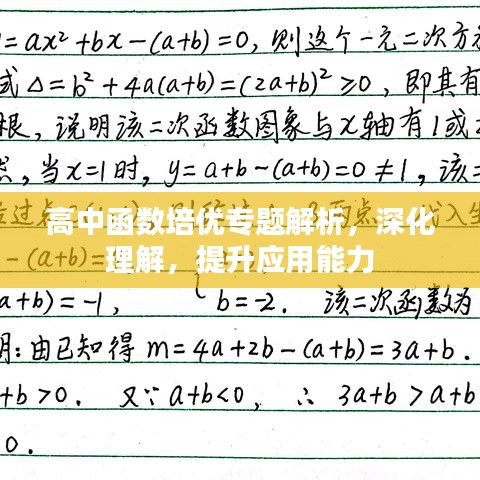 =ax²+bx-(a+b)=0,则这个一元二次方
式Δ=b²+4a(a+b)=(2a+b)²≥0,即其有
根,说明该二次函数图象与x轴有1或
,当x=1时,y=a+b-(a+b)=0≠1,该二
过点
高中函数培优专题解析,深化
理解,提升应用能力
-(a+b)=
a+b)=-1, b=-2. 该二次函数为
明:由已知得m=4a+2b-(a+b)=3a+b.
+b>0. 又∵a+b<0, ∴3a+b>a+b
0.